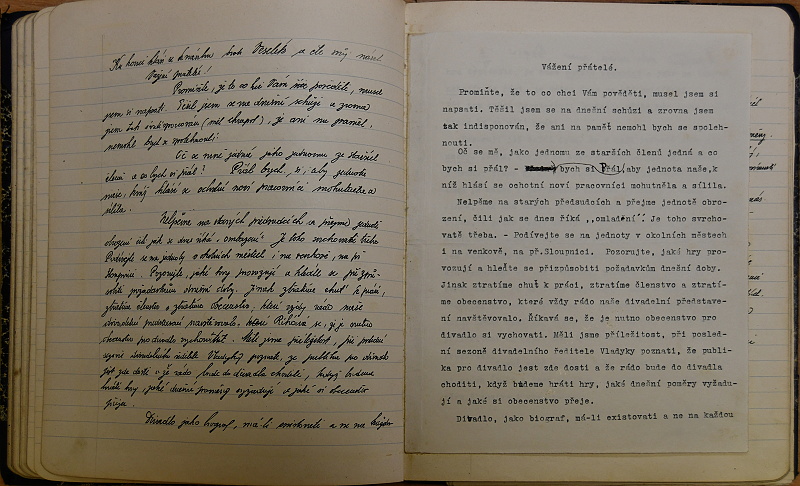 Ke konci hlásí se k návrhu brat Veselek a
Vážení přátelé!
Promiňte, že to co chci Vám pověděti, musel
jsem si napsati. Těšil jsem se na dnešní schůzi a zrovna
jsem tak indisponován
nemohl bych se spolehnouti.
Oč se mě jedná, jako jednomu ze starších
členů a co bych si přál? Přál bych si, aby jednota
naše, k níž hlásí se ochotní noví pracovníci mohutněla a
sílila.
Nelpěme na starých předsudcích a přejme jednotě
obrození čili jak se dnes říká „omlazení“. Je toho svrchovaně třeba.
Podívejte se na jednoty v okolních městech i na venkově, na př.
Sloupnici. Pozorujte, jaké hry provozují a hleďte se přizpů-
sobiti požadavkům dnešní doby. Jinak ztratíme chuť k práci,
ztratíme členstvo a ztratíme obecenstvo, které vždy rádo naše
divadelní představení navštěvovalo. Říkává se, že je nutno
obecenstvo pro divadlo si vychovati. Měli jsme příležitost, při poslední
sezoně divadelního ředitele Vladyky poznati, že publika pro divadlo
jest zde dosti a že rádo bude do divadla choditi, když budeme
hráti hry, jaké dnešní poměry vyžadují a jaké si obecenstvo
přeje.
Divadlo jako biograf, má-li existovati a ne na každou
Vážení přátelé.
Promiňte, že to co chci Vám pověděti, musel jsem si
napsati. Těšil jsem se na dnešní schůzi a zrovna jsem
tak indisponován, že ani na paměť nemohl bych se spoleh-
nouti.
Oč se mě, jako jednomu ze starších členů jedná a co
bych si přál? - bych si Přál, aby jednota naše,k
níž hlásí se ochotní noví pracovníci mohutněla a sílila.
Nelpěme na starých předsudcích a přejme jednotě obro-
zení, čili jak se dnes říká ,,omladění". Je toho svrcho-
vatě třeba. - Podívejte se na jednoty v okolních městech
i na venkově, na př.Sloupnici. Pozorujte, jaké hry pro-
vozují a hleďte se přizpůsobiti požadavkům dnešní doby.
Jinak ztratíme chuť k práci, ztratíme členstvo a ztratí-
me obecenstvo, která vždy rádo naše divadelní představe-
ní navštěvovalo. Říkává se, že je nutno obecenstvo pro
divadlo si vychovati. Měli jsme příležitost, při posled-
ní sezoně divadelního ředitele Vladyky poznati, že publi-
ka pro divadlo jest zde dosti a že rádo bude do divadla
choditi, když budeme hráti hry, jaké dnešní poměry vyžadu-
jí a jaké si obecenstvo přeje.
Divadlo, jako biograf, má-li existovati a ne na každou